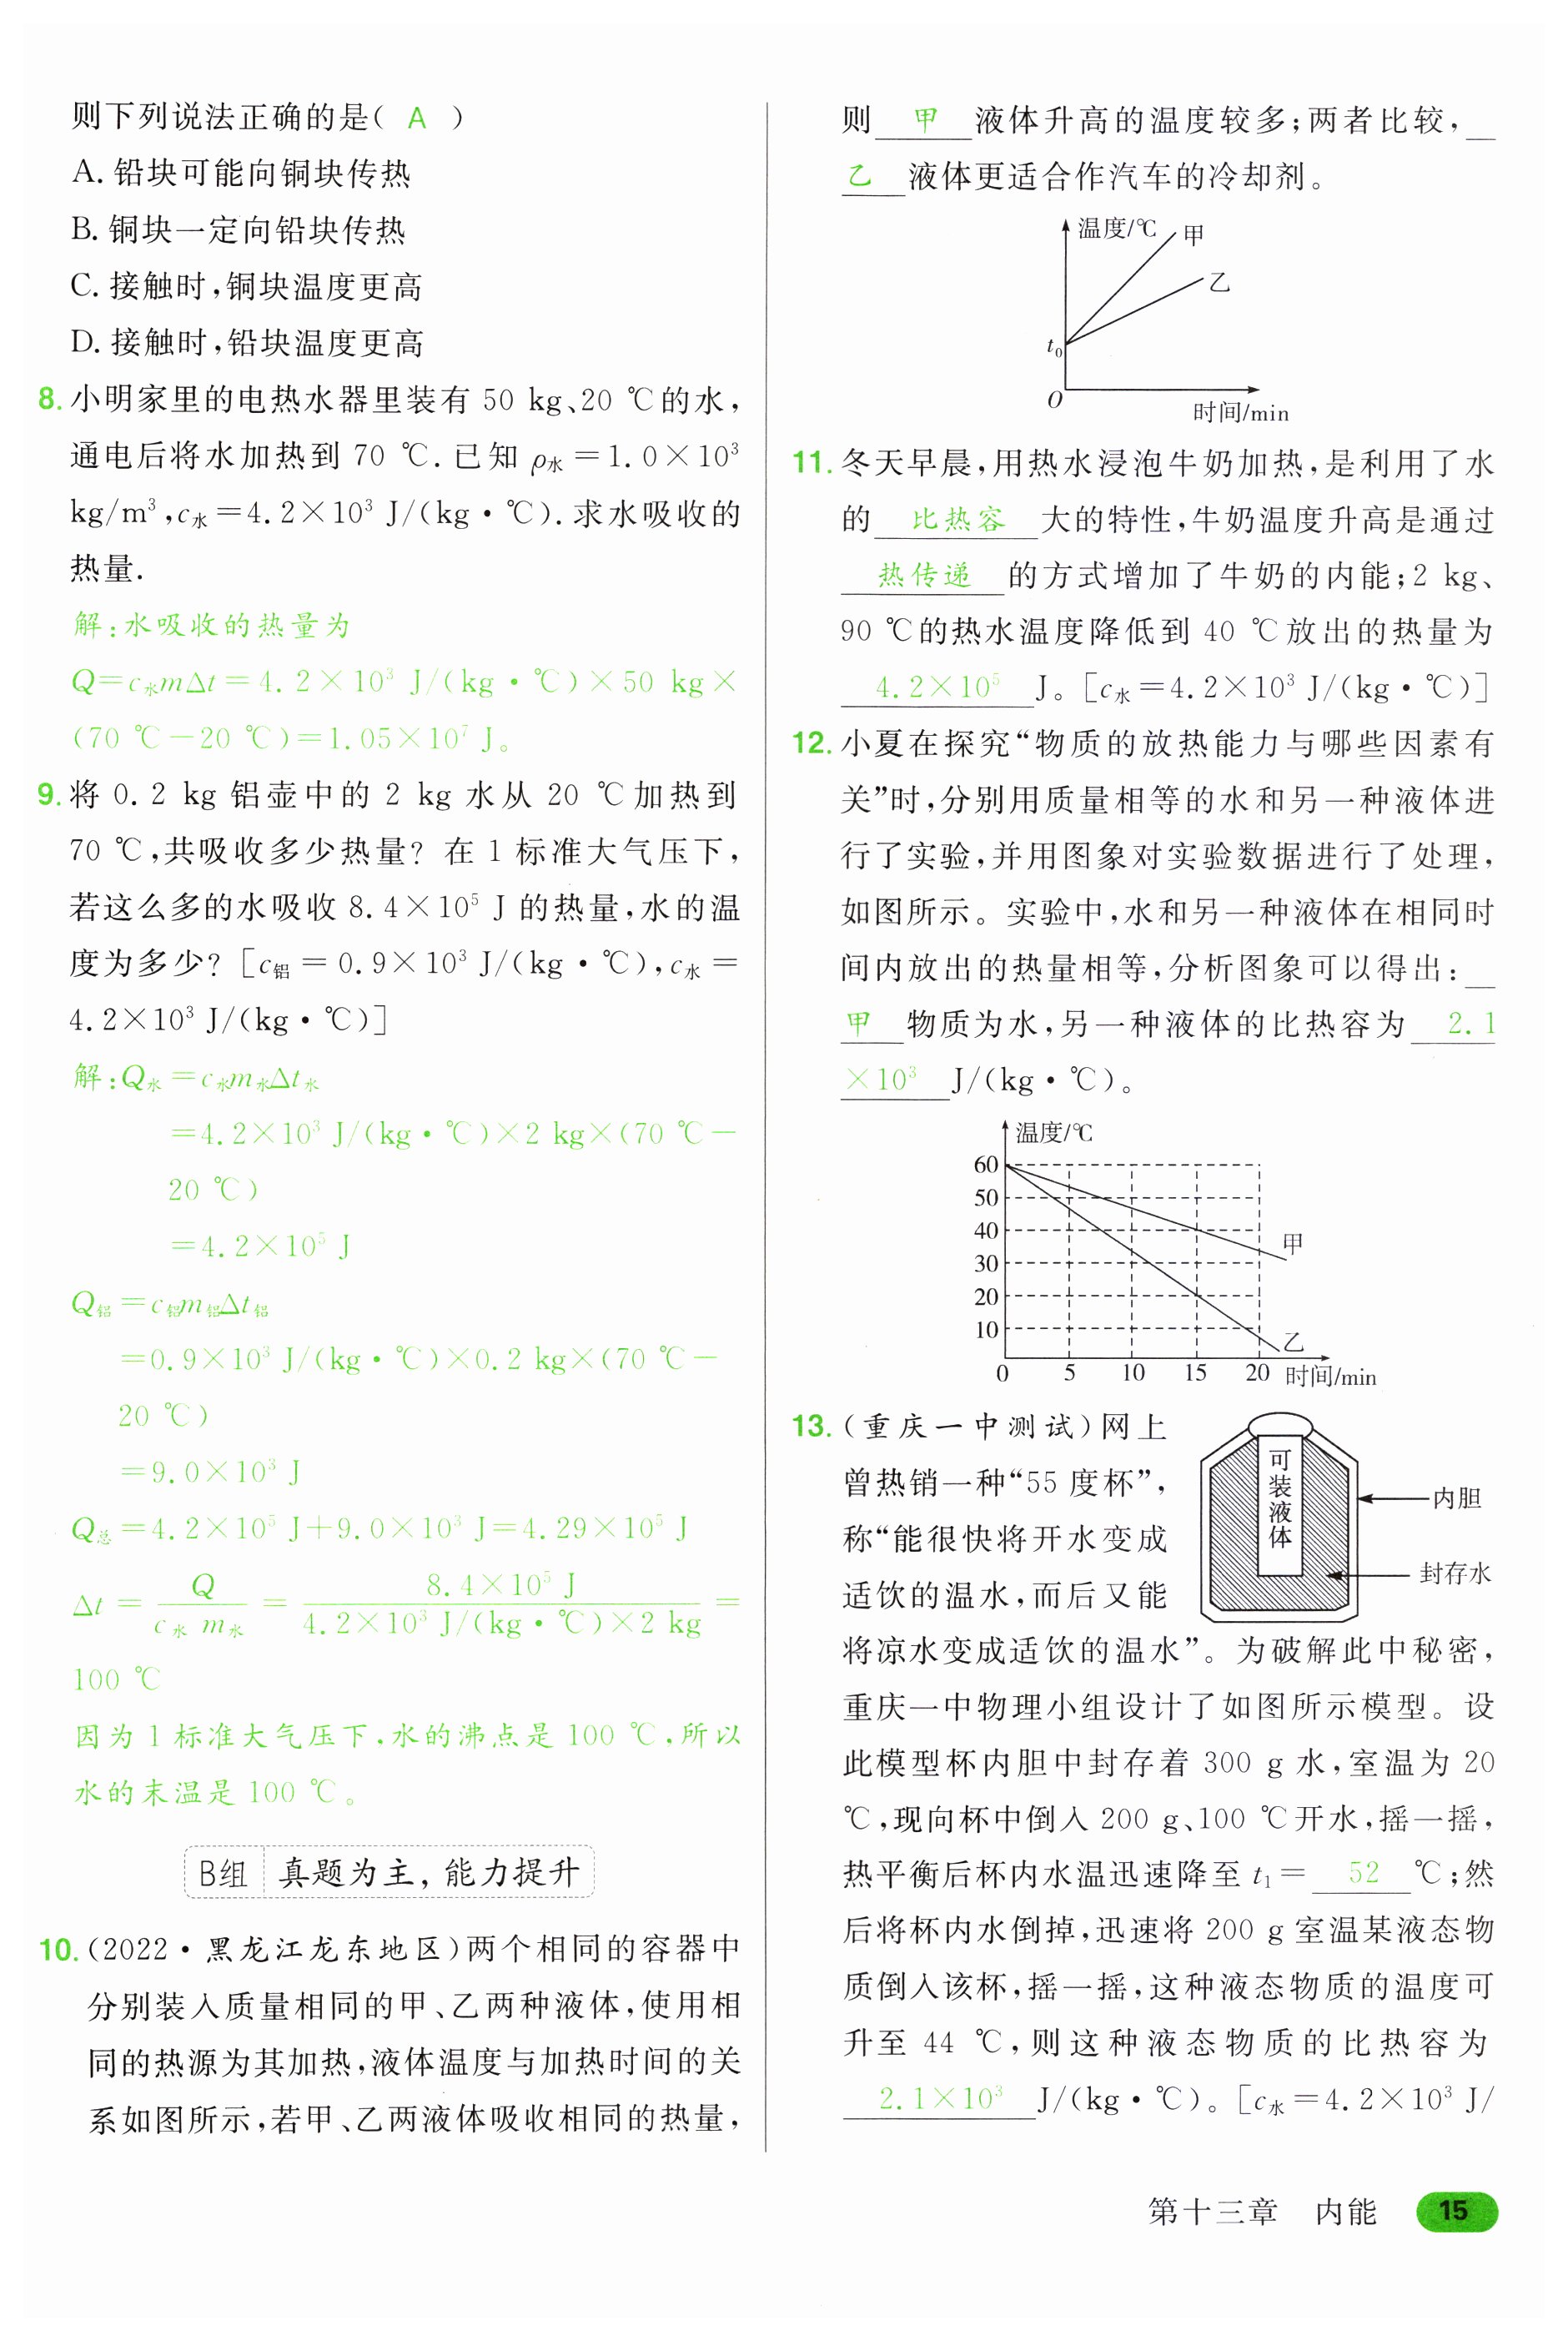 则下列说法正确的是( A )
A. 铅块可能向铜块传热
B. 铜块一定向铅块传热
C. 接触时,铜块温度更高
D. 接触时,铅块温度更高
8. 小明家里的电热水器里装有 50 kg、20 ℃的水,
通电后将水加热到 70 ℃. 已知 ρ水 =1.0×10³
kg/m³,c水=4.2×10³ J/(kg·℃). 求水吸收的
热量.
解:水吸收的热量为
Q=c水mΔt=4.2×10³ J/(kg·℃)×50 kg×
(70 ℃-20 ℃)=1.05×10⁷ J。
9. 将 0.2 kg 铝壶中的 2 kg 水从 20 ℃加热到
70 ℃,共吸收多少热量? 在 1 标准大气压下,
若这么多的水吸收 8.4×10⁵ J 的热量,水的温
度为多少? [c铝 = 0.9×10³ J/(kg·℃),c水 =
4.2×10³ J/(kg·℃)]
解:Q水=c水m水Δt水
=4.2×10³ J/(kg·℃)×2 kg×(70 ℃-
20 ℃)
=4.2×10⁵ J
Q铝=c铝m铝Δt铝
=0.9×10³ J/(kg·℃)×0.2 kg×(70 ℃-
20 ℃)
=9.0×10³ J
Q总=4.2×10⁵ J+9.0×10³ J=4.29×10⁵ J
Δt = Q/(c水 m水) = 8.4×10⁵ J/(4.2×10³ J/(kg·℃)×2 kg) =
100 ℃
因为 1 标准大气压下,水的沸点是 100 ℃,所以
水的末温是 100 ℃。
B组 真题为主,能力提升
10. (2022·黑龙江龙东地区)两个相同的容器中
分别装入质量相同的甲、乙两种液体,使用相
同的热源为其加热,液体温度与加热时间的关
系如图所示,若甲、乙两液体吸收相同的热量,
则 甲 液体升高的温度较多;两者比较,
乙 液体更适合作汽车的冷却剂。
温度/℃
甲
乙
t₀
O
时间/min
11. 冬天早晨,用热水浸泡牛奶加热,是利用了水
的 比热容 大的特性,牛奶温度升高是通过
热传递 的方式增加了牛奶的内能;2 kg、
90 ℃的热水温度降低到 40 ℃放出的热量为
4.2×10⁵ J。[c水=4.2×10³ J/(kg·℃)]
12. 小夏在探究“物质的放热能力与哪些因素有
关”时,分别用质量相等的水和另一种液体进
行了实验,并用图象对实验数据进行了处理,
如图所示。实验中,水和另一种液体在相同时
间内放出的热量相等,分析图象可以得出:
甲 物质为水,另一种液体的比热容为 2.1
×10³ J/(kg·℃)。
温度/℃
60
50
40
30
20
10
甲
乙
0 5 10 15 20 时间/min
13. (重庆一中测试)网上
曾热销一种“55 度杯”,
称“能很快将开水变成
适饮的温水,而后又能
可装液体
内胆
封存水
将凉水变成适饮的温水”。为破解此中秘密,
重庆一中物理小组设计了如图所示模型。设
此模型杯内胆中封存着 300 g 水,室温为 20
℃,现向杯中倒入 200 g、100 ℃开水,摇一摇,
热平衡后杯内水温迅速降至 t₁= 52 ℃;然
后将杯内水倒掉,迅速将 200 g 室温某液态物
质倒入该杯,摇一摇,这种液态物质的温度可
升至 44 ℃,则这种液态物质的比热容为
2.1×10³ J/(kg·℃)。[c水=4.2×10³ J/
第十三章 内能 15